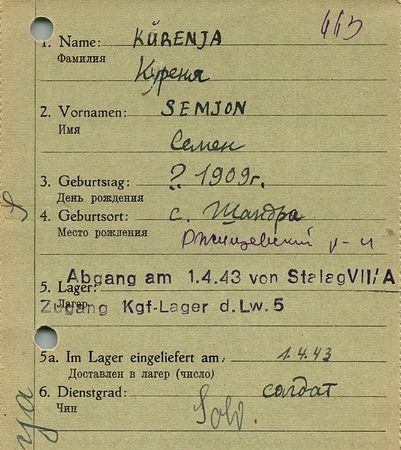 1. Name: KÜRENJA
Фамилия
Куреня
2. Vornamen: SEMJON
Имя
Семен
3. Geburtstag: ? 1909г.
День рождения
4. Geburtsort: с. Шандра
Место рождения
Ржищевский р-н
Abgang am 1.4.43 von Stalag VII/A
5. Lager:
Лагерь
Zugang Kgf-Lager d. Lw. 5
5a. Im Lager eingeliefert am: 1.4.43
Доставлен в лагерь (число)
6. Dienstgrad: солдат
Чин
Sold.